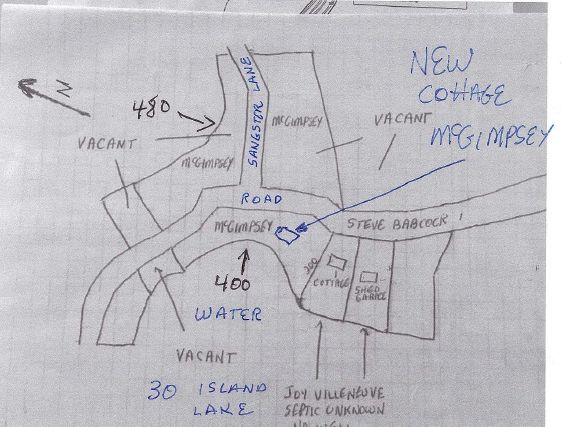 N
NEW
COTTAGE
McGIMPSEY
480
SANGSTER LANE
McGIMPSEY
VACANT
VACANT
McGIMPSEY
ROAD
McGIMPSEY
STEVE BABCOCK
200
COTTAGE
SHED
GARAGE
400
WATER
VACANT
30 ISLAND
LAKE
JOY VILLENEUVE
SEPTIC UNKNOWN